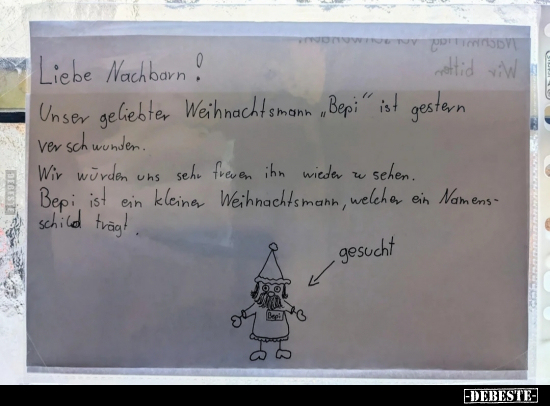 Nachmittag verschwunden.
Wir bitten
Liebe Nachbarn!
Unser geliebter Weihnachtsmann „Bepi" ist gestern
verschwunden.
Wir würden uns sehr freuen ihn wieder zu sehen.
Bepi ist ein kleiner Weihnachtsmann, welcher ein Namens-
schild trägt.
gesucht
Bepi
DEBESTE
-DEBESTE-